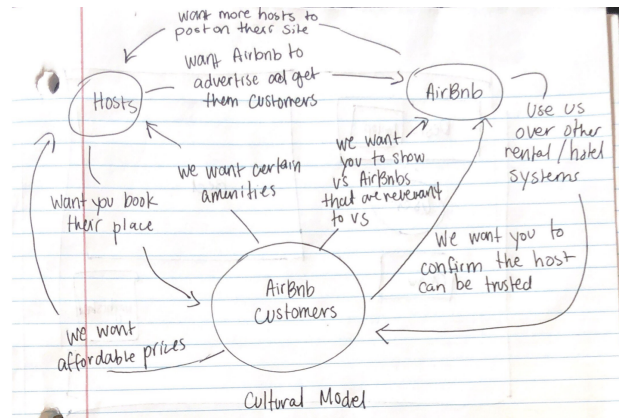 want more hosts to
post on their site
want Airbnb to
advertise and get
them customers
Hosts
AirBnb
Use us
over other
rental/hotel
systems
we want
you to show
us AirBnbs
that are revenant
to us
we want certain
amenities
Want you book
their place
We want you to
confirm the host
can be trusted
AirBnb
Customers
we want
affordable prices
Cultural Model